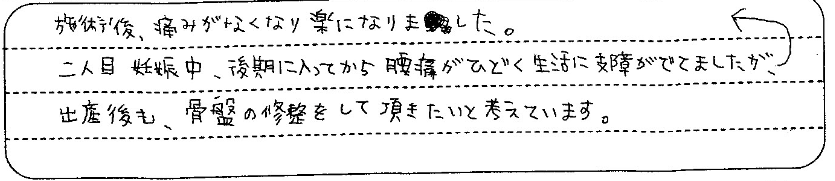 施術後、痛みがなくなり楽になりました。
二人目妊娠中、後期に入ってから腰痛がひどく生活に支障がでてましたが、
出産後も、骨盤の修整をして頂きたいと考えています。